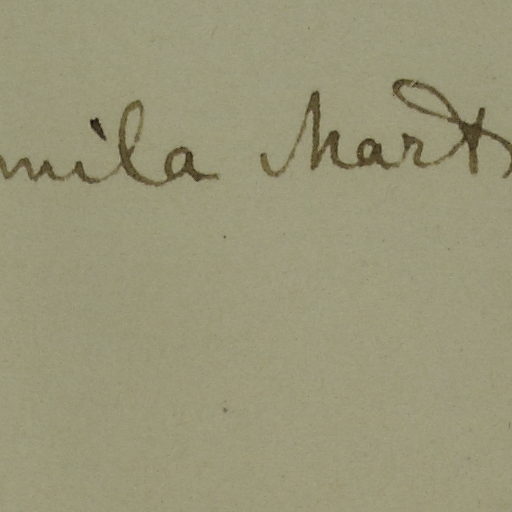 mila Mart